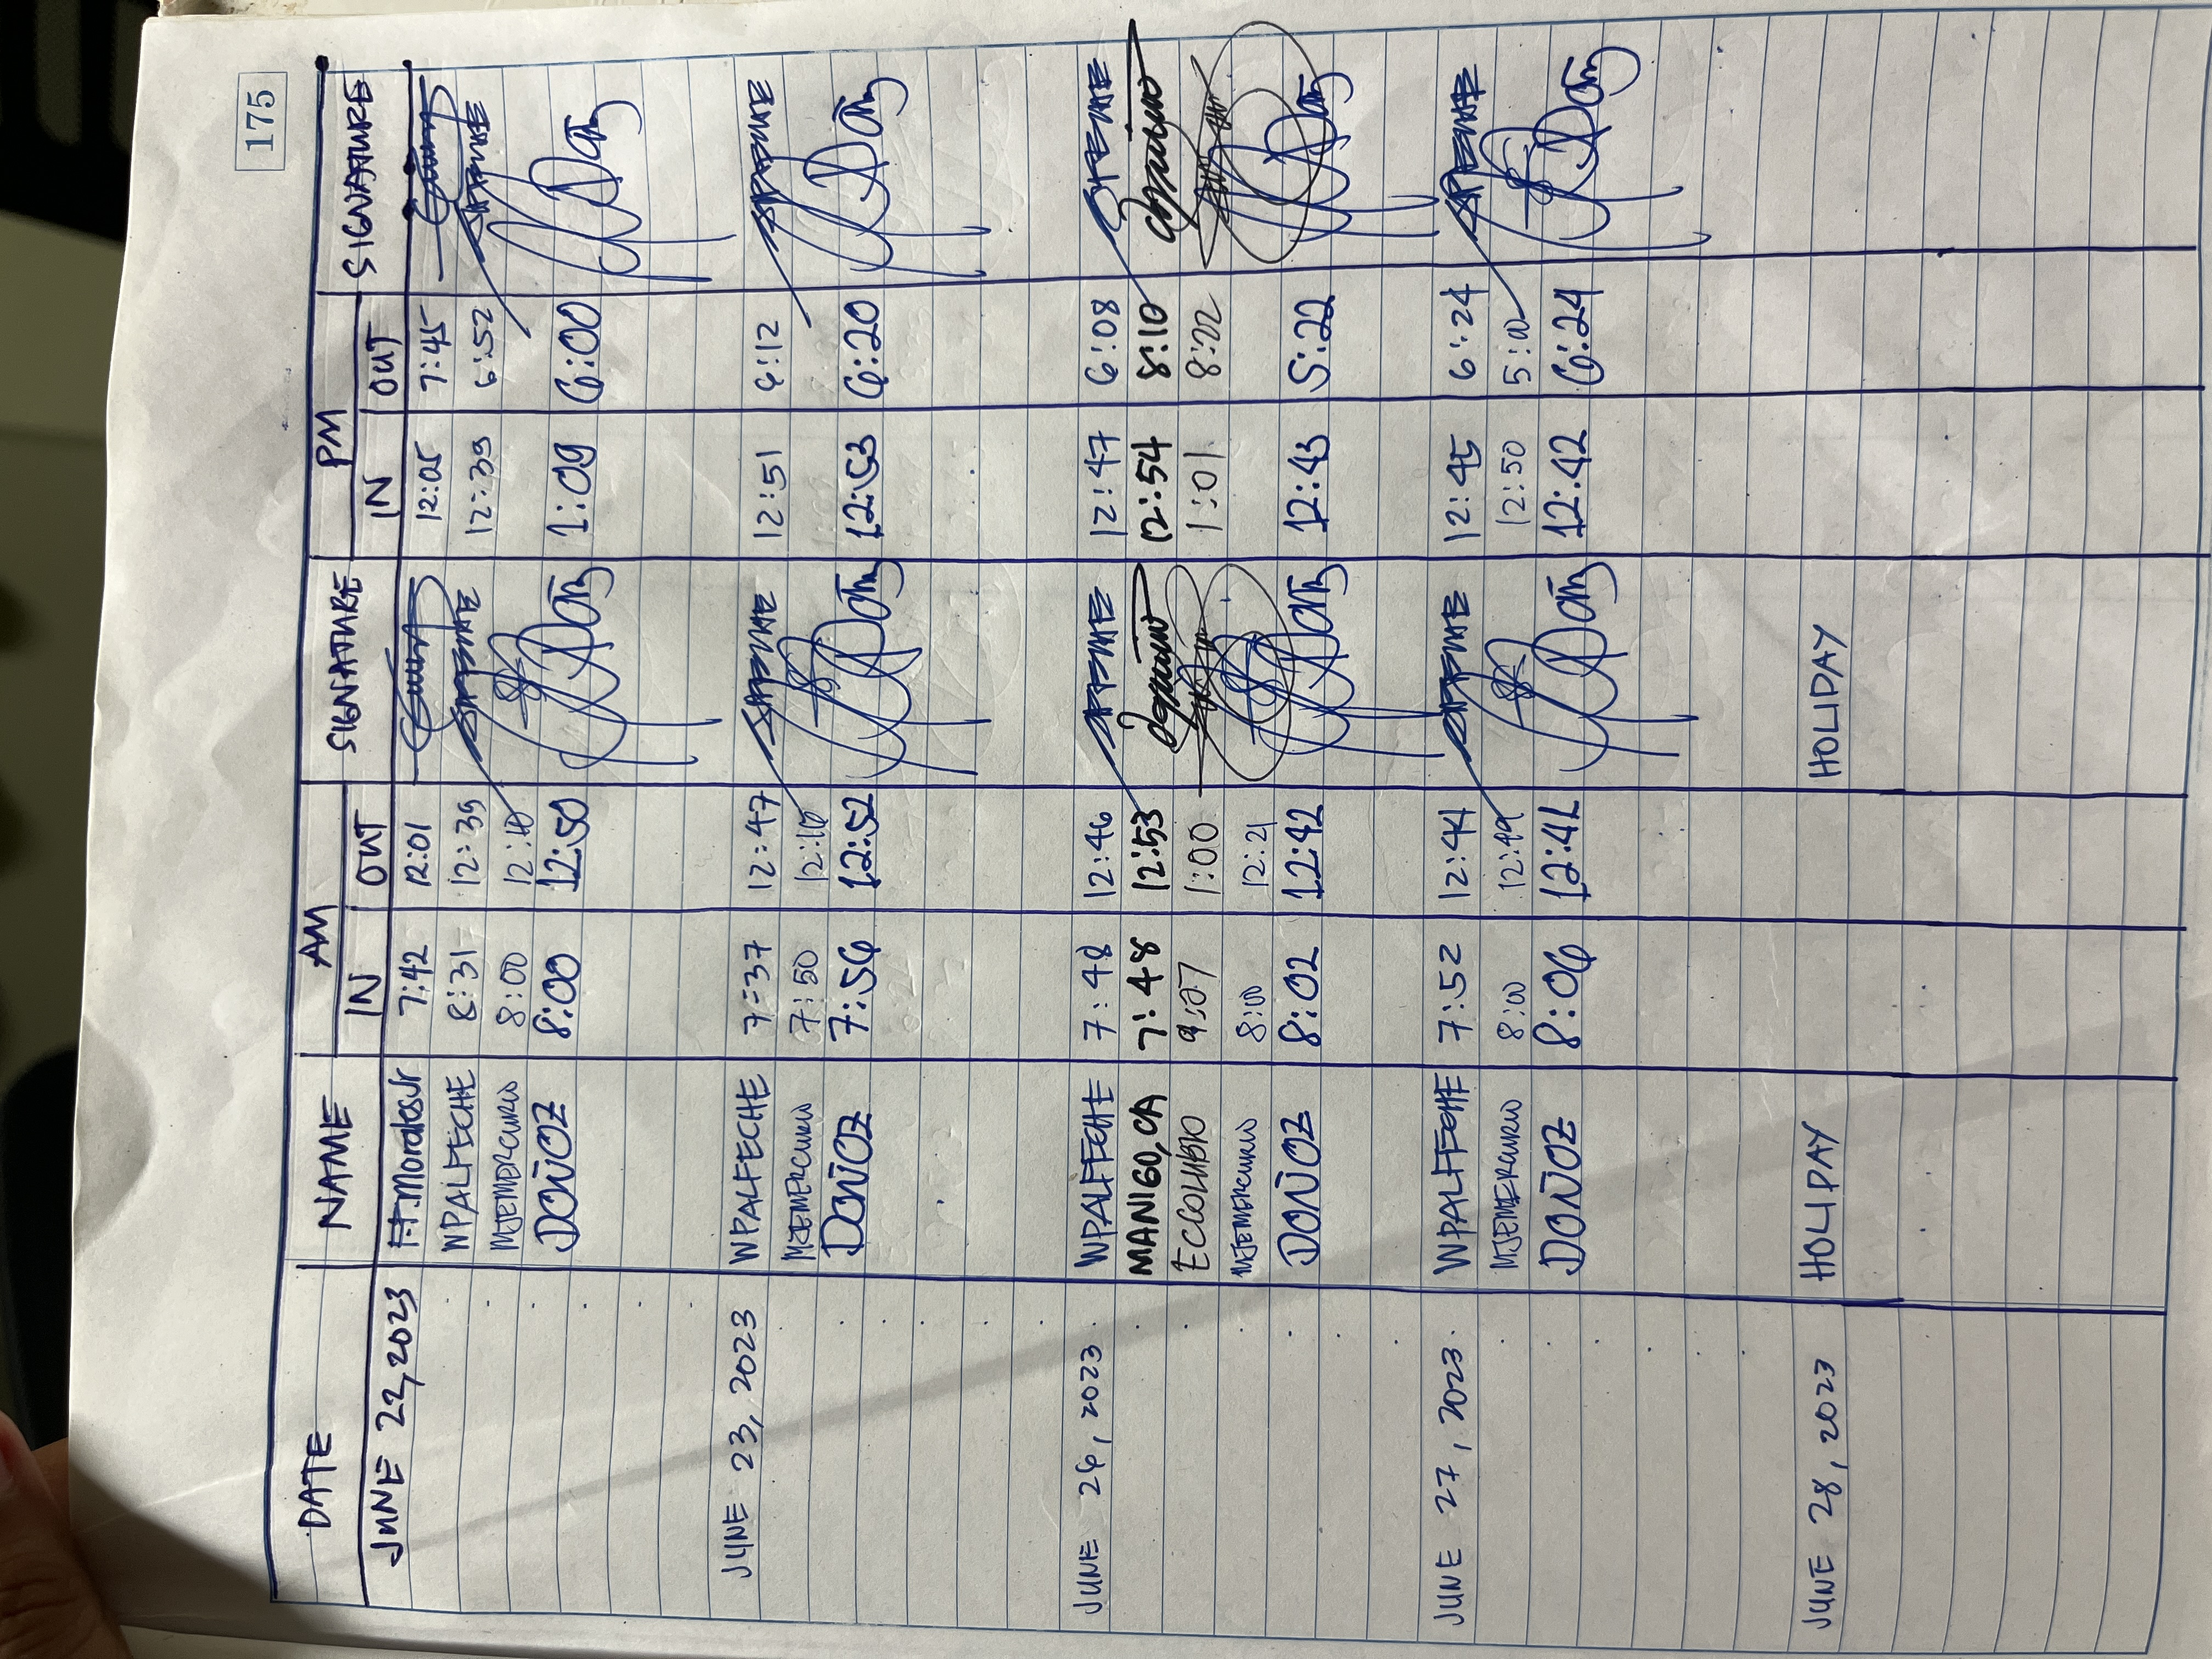 175
DATE NAME AM SIGNATURE PM SIGNATURE
IN OUT IN OUT
JUNE 22, 2023 F.T. Morales Jr 7:42 12:01 12:05 7:45
WPALFECHE 8:31 12:39 12:39 6:52
MJEMERCURIO 8:00
DOÑOZ 8:00 12:50 1:09 6:00
JUNE 23, 2023 WPALFECHE 7:37 12:47 12:51 6:12
MJEMERCURIO 7:50
DOÑOZ 7:56 12:52 12:53 6:20
JUNE 26, 2023 WPALFECHE 7:48 12:46 12:47 6:08
MANIGO, CA 7:48 12:53 12:54 8:10
9:27 1:00 1:01 8:22
MJEMERCURIO 8:00 12:21
DOÑOZ 8:02 12:42 12:43 5:22
JUNE 27, 2023 WPALFECHE 7:52 12:44 12:45 6:24
MJEMERCURIO 8:00 12:49 12:50 5:00
DOÑOZ 8:06 12:41 12:42 6:24
JUNE 28, 2023 HOLIDAY HOLIDAY